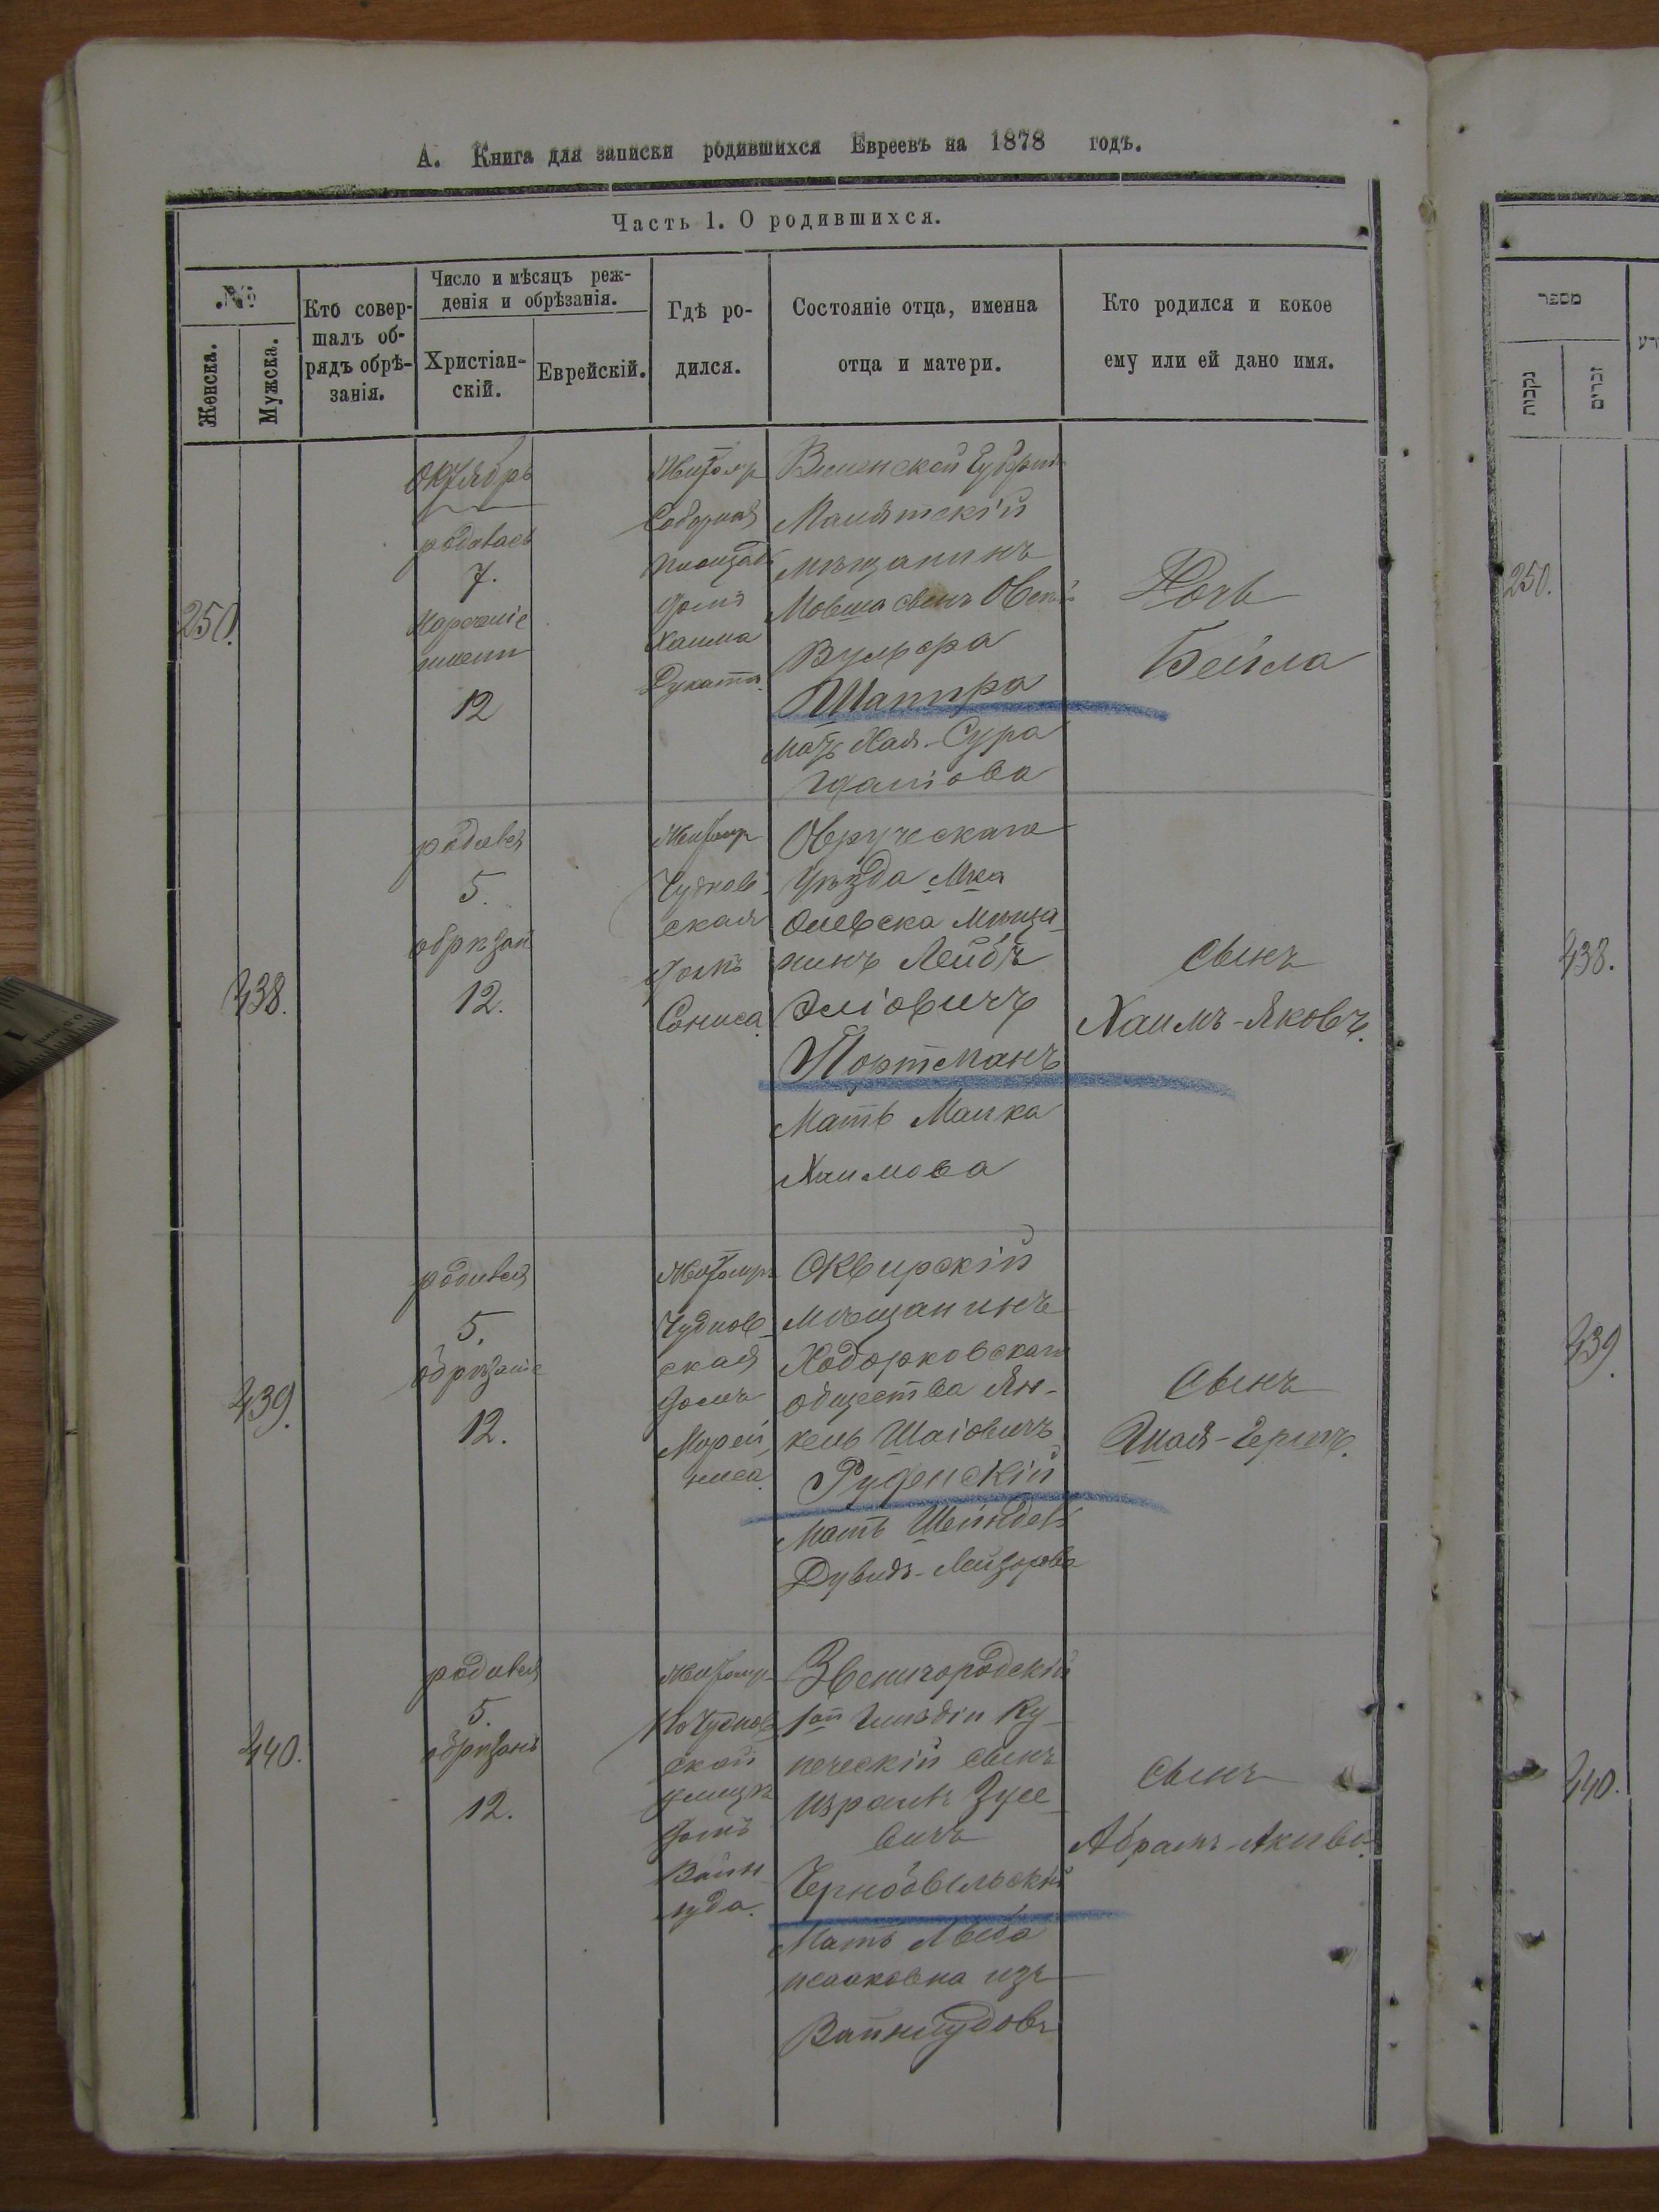 А. Книга для записки родившихся Евреевъ на 1878 годъ.
Часть 1. О родившихся.
№
Женска.
Мужска.
Кто совер-
шалъ об-
рядъ обрѣ-
занія.
Число и мѣсяцъ реж-
денія и обрѣзанія.
Христіан-
скій.
Еврейскій.
Гдѣ ро-
дился.
Состояніе отца, именна
отца и матери.
Кто родился и кокое
ему или ей дано имя.
250.
Октябрь
родилась
7.
Нареченіе
имени
12
Житомір
Соборная
площадь
домъ
Хаима
Виленской Губерніи
мѣщанинъ
Мовша
Шапира
мать Хая-Сура
Дочь
Бейла
438.
родился
5.
обрѣзан
12.
Житомир
Чуднов-
ская
домъ
Овручскаго
Уѣзда М-ка
Олевска мѣща-
нинъ Лейбъ
Эліовичъ
Портманъ
Мать Малка
Хаимова
сынъ
Хаимъ-Яковъ.
439.
родился
5.
обрѣзаніе
12.
Житомиръ
Чуднов-
ская
домъ
Сквирскій
мѣщанинъ
Ходорковскаго
общества Ян-
кель Шаіовичъ
Руденскій
Мать Шейндель
Дувидъ-Лейзорова
Сынъ
440.
родился
5.
обрѣзанъ
12.
Житомир
По Чуднов
ской
улицѣ
домъ
Вайн-
луда.
Звенигородскій
1ой Гильдіи Ку-
печескій сынъ
Израиль Зусе-
вичъ
Чернобыльскій
Мать
Исааковна изъ
Вайнлудовъ
сынъ
Абрамъ-Акива.
מספר
נקבות
זכרים
250.
438.
439.
440.